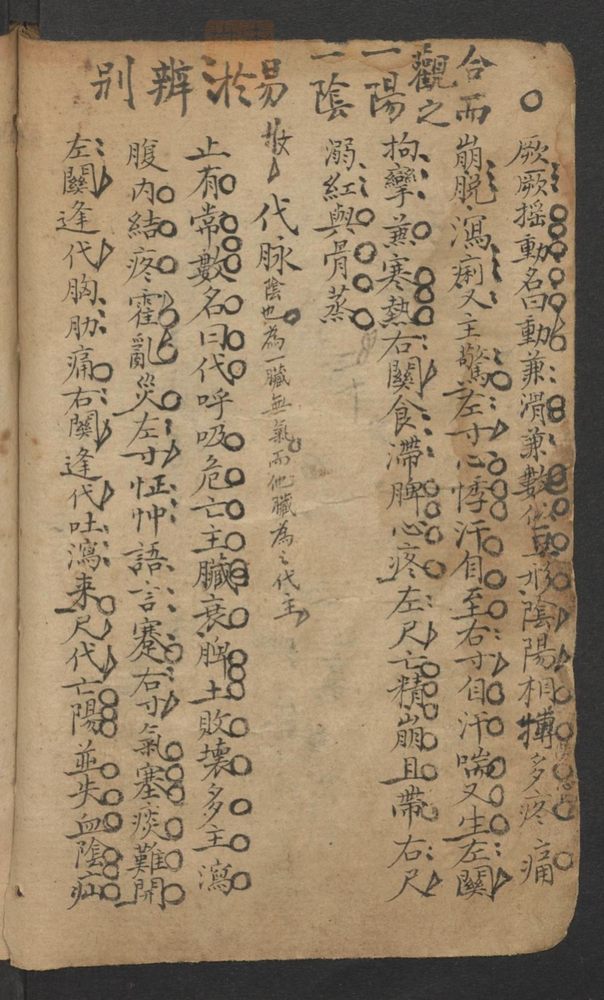 合而
觀之
一陽
一陰
易於辨別
厥厥搖動名曰動兼滑兼數似豆形陰陽相搏多疼痛
崩脱瀉痢又主驚左寸心悸汗自至右寸自汗喘又生左關
拘攣兼寒熱右關食滯脾心疼左尺亡精崩且帶右尺
溺紅與骨蒸
代脉陰也為一臟無氣而他臟為之代主
止有常數名曰代呼吸危亡主臟衰脾土敗壞多主瀉
腹内結疼霍亂災左寸怔忡語言蹇右寸氣塞痰難開
左關逢代胸肋痛右關逢代吐瀉来尺代亡陽並失血陰疝